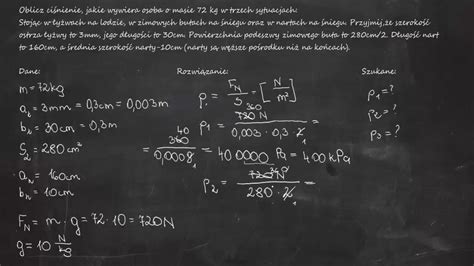 Oblicz ciśnienie, jakie wywiera osoba o masie 72 kg w trzech sytuacjach:
Stojąc w łyżwach na lodzie, w zimowych butach na śniegu oraz w nartach na śniegu. Przyjmij,że szerokość
ostrza łyżwy to 3mm, jego długości to 30cm. Powierzchnia podeszwy zimowego buta to 280cm/2. Długość nart
to 160cm, a średnia szerokość narty-10cm (narty są węższe pośrodku niż na końcach).
Dane: Rozwiązanie: Szukane:
m = 72kg
ał = 3mm = 0,3cm = 0,003m
bł = 30cm = 0,3m
S2 = 280 cm²
aN = 160cm
bN = 10cm
FN = m · g = 72 · 10 = 720N
g = 10 N/kg
p = FN/S = [N/m²]
p1 = 720 N 360 / 0,003 · 0,3 · 2 1 =
= 360 40 / 0,0009 1 = 400000 Pa = 400 kPa
p2 = 720 N / 280 · 2 1 =
p1 = ?
p2 = ?
p3 = ?